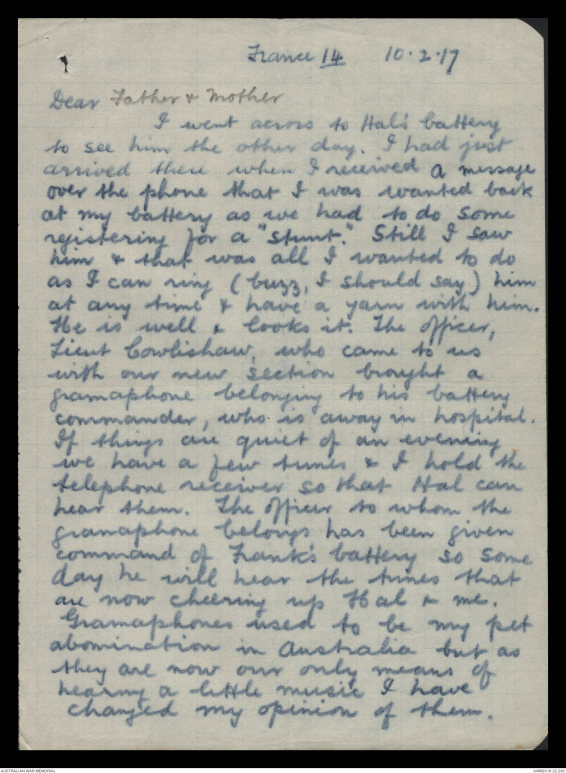 France 14 10.2.17
Dear Father & Mother
I went across to Hal's battery
to see him the other day. I had just
arrived there when I received a message
over the phone that I was wanted back
at my battery as we had to do some
registering for a "stunt." Still I saw
him & that was all I wanted to do
as I can ring (buzz, I should say) him
at any time & have a yarn with him.
He is well & looks it. The officer,
Lieut Cowlishaw, who came to us
with our new section brought a
gramaphone belonging to his battery
commander, who is away in hospital.
If things are quiet of an evening
we have a few tunes & I hold the
telephone receiver so that Hal can
hear them. The officer to whom the
gramaphone belongs has been given
command of Frank's battery so some
day he will hear the tunes that
are now cheering up Hal & me.
Gramaphones used to be my pet
abomination in Australia but as
they are now our only means of
hearing a little music I have
changed my opinion of them.
AUSTRALIAN WAR MEMORIAL